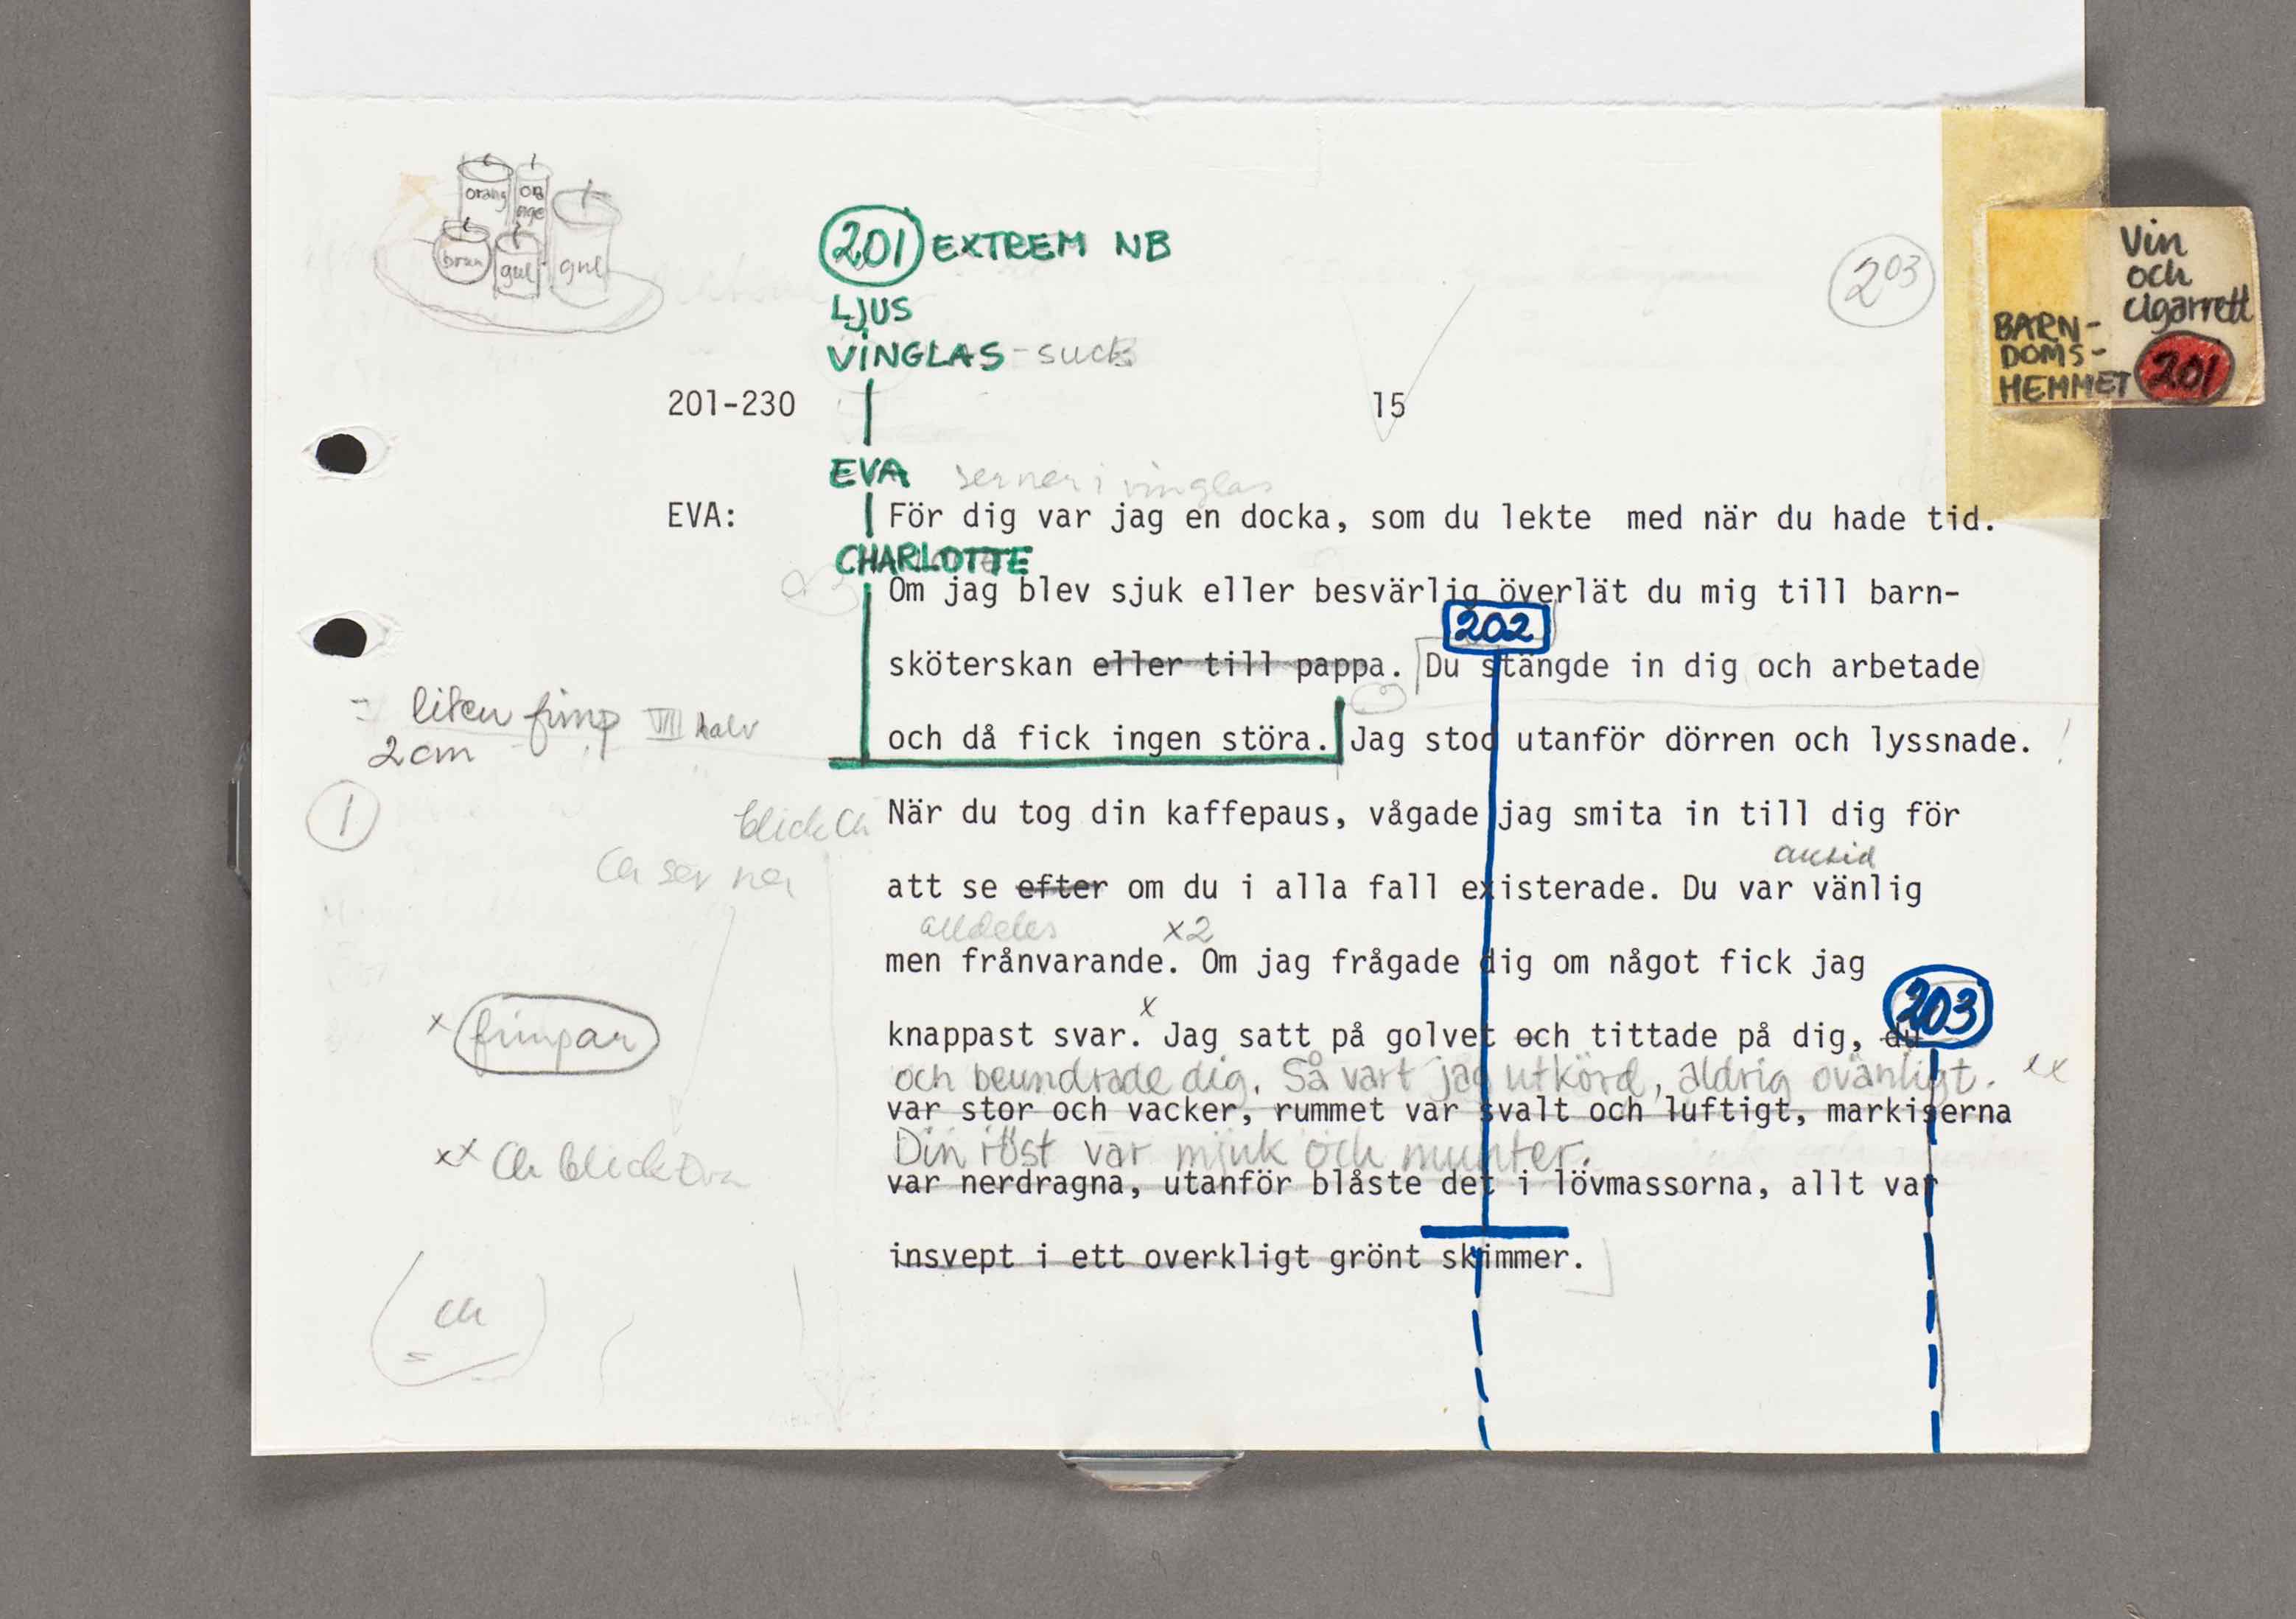 orang
ora
nge
brun
gul
gul
201 EXTREM NB
LJUS
VINGLAS - suck
203
Vin
och
cigarrett
BARN-
DOMS-
HEMMET 201
201-230
15
EVA ser ner i vinglas
EVA: För dig var jag en docka, som du lekte med när du hade tid.
CHARLOTTE
Om jag blev sjuk eller besvärlig överlät du mig till barn-
202
sköterskan eller till pappa. Du stängde in dig och arbetade
= liten fimp VIII halv
2 cm
och då fick ingen störa. Jag stod utanför dörren och lyssnade. !
1
blick Ch
När du tog din kaffepaus, vågade jag smita in till dig för
Ch ser ner
alltid
att se efter om du i alla fall existerade. Du var vänlig
alldeles x2
men frånvarande. Om jag frågade dig om något fick jag
x
203
x fimpar
knappast svar. Jag satt på golvet och tittade på dig, du
och beundrade dig. Så vart jag utkörd, aldrig ovänligt. xx
var stor och vacker, rummet var svalt och luftigt, markiserna
Din röst var mjuk och munter.
xx Ch blick Eva
var nerdragna, utanför blåste det i lövmassorna, allt var
insvept i ett overkligt grönt skimmer.
Ch